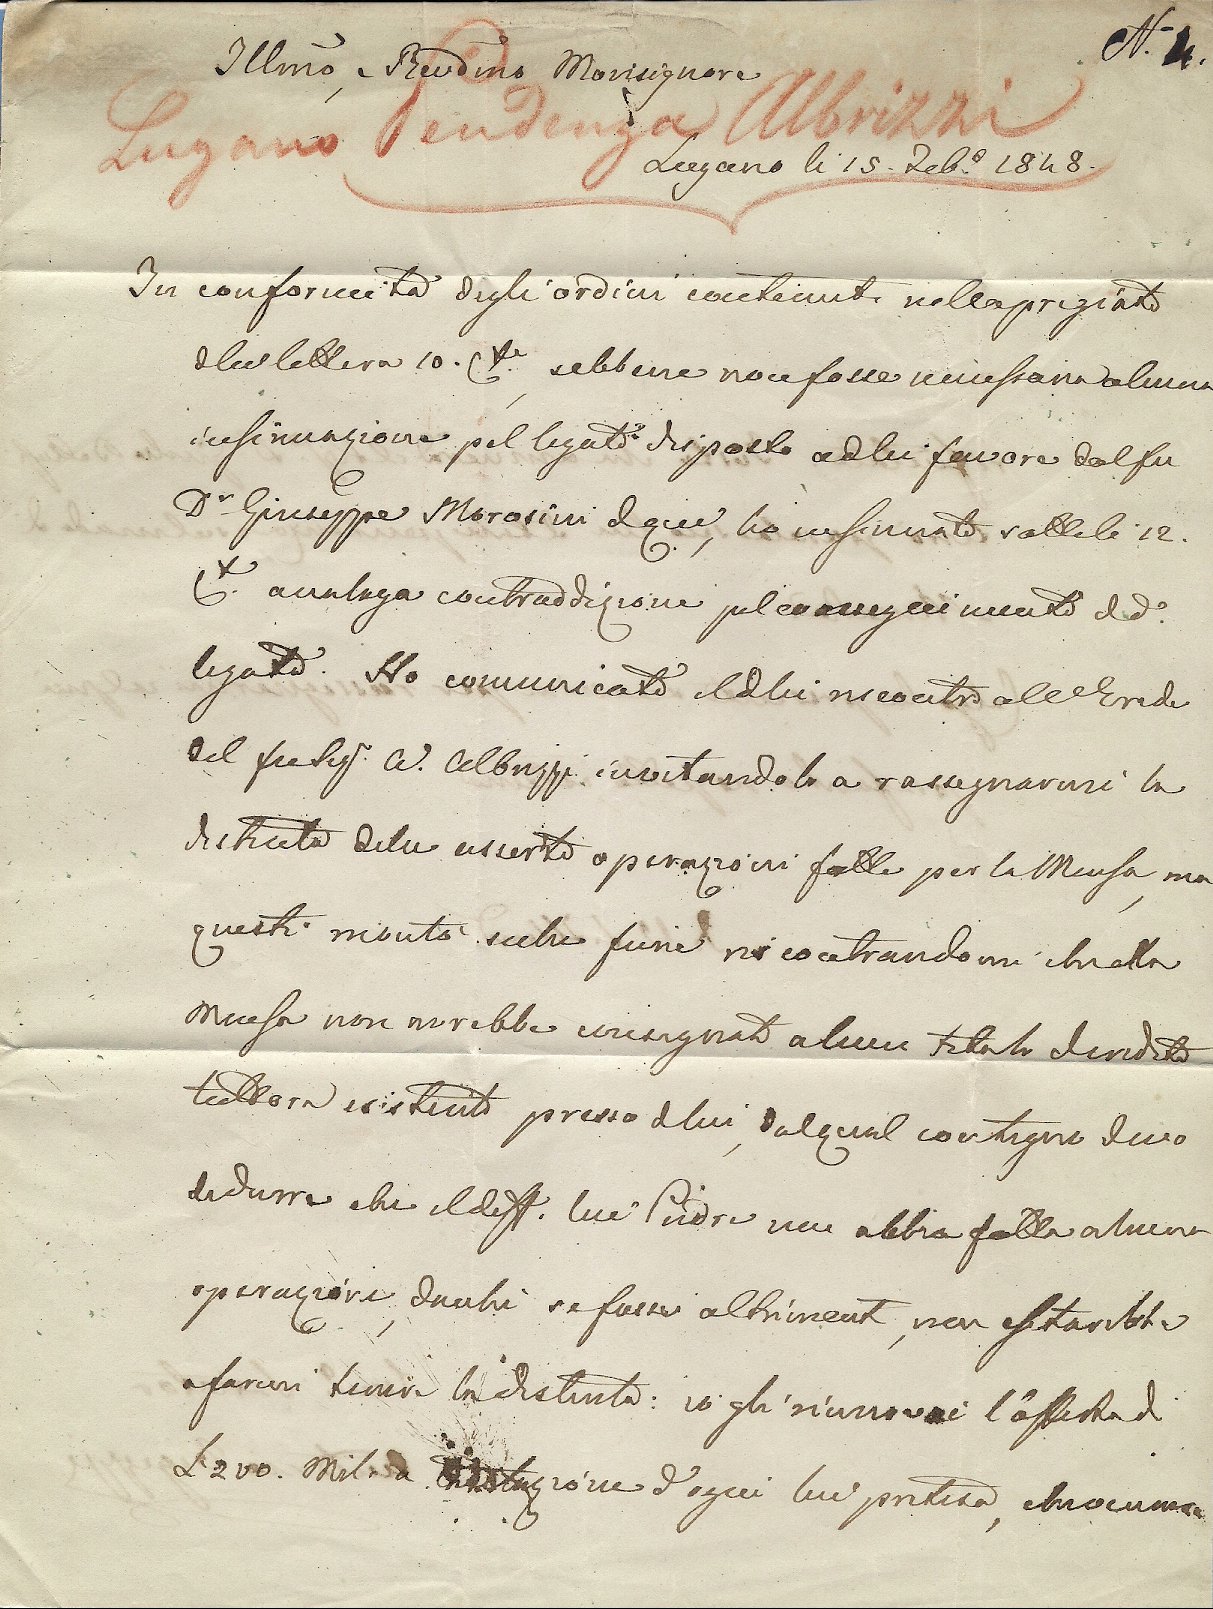 N.° 4.
Illmo, e Revdmo Monsignore
Lugano Pendenza Albrizzi
Lugano li 15. Feb.° 1848.
In conformità degli ordini contenuti nella pregiata
di lei lettera 10. Cte, sebbene non fosse necessaria alcuna
insinuazione pel legato disposto a di lei favore dal fu
Dr. Giuseppe Morosini di qui, ho insinuato sotto li 12.
Ct. analoga contraddizione pel conseguimento del do.
legato. Ho comunicato il di lei riscontro all'Erede
del fu Sigr. Albrizzi invitandolo a rassegnarmi la
distinta delle asserte operazioni fatte per la Mensa, ma
questi montò sulle furie riscontrandomi che alla
Mensa non avrebbe consegnato alcun titolo di credito
tuttora esistente presso di lui, dal qual contegno devo
dedurre che il deff. lui Padre non abbia fatta alcuna
operazione, da che se fosse altrimenti, non esitarebbe
a farmi tenere la distinta: io gli rinnovai l'offerta di
L 200. Mil. a d'ogni lui pretesa,